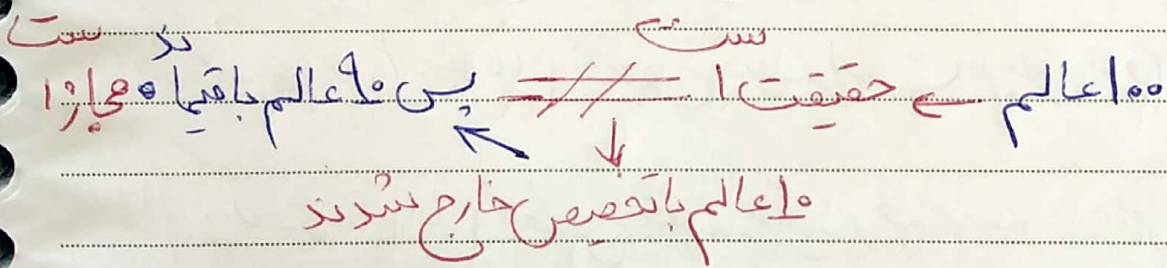 ۱۰۰ عالم ← حقیقت است =//= پس ۹۰ عالم باقیمانده مجاز است
↓ ↖
۱۰ عالم با تخصیص خارج شدند